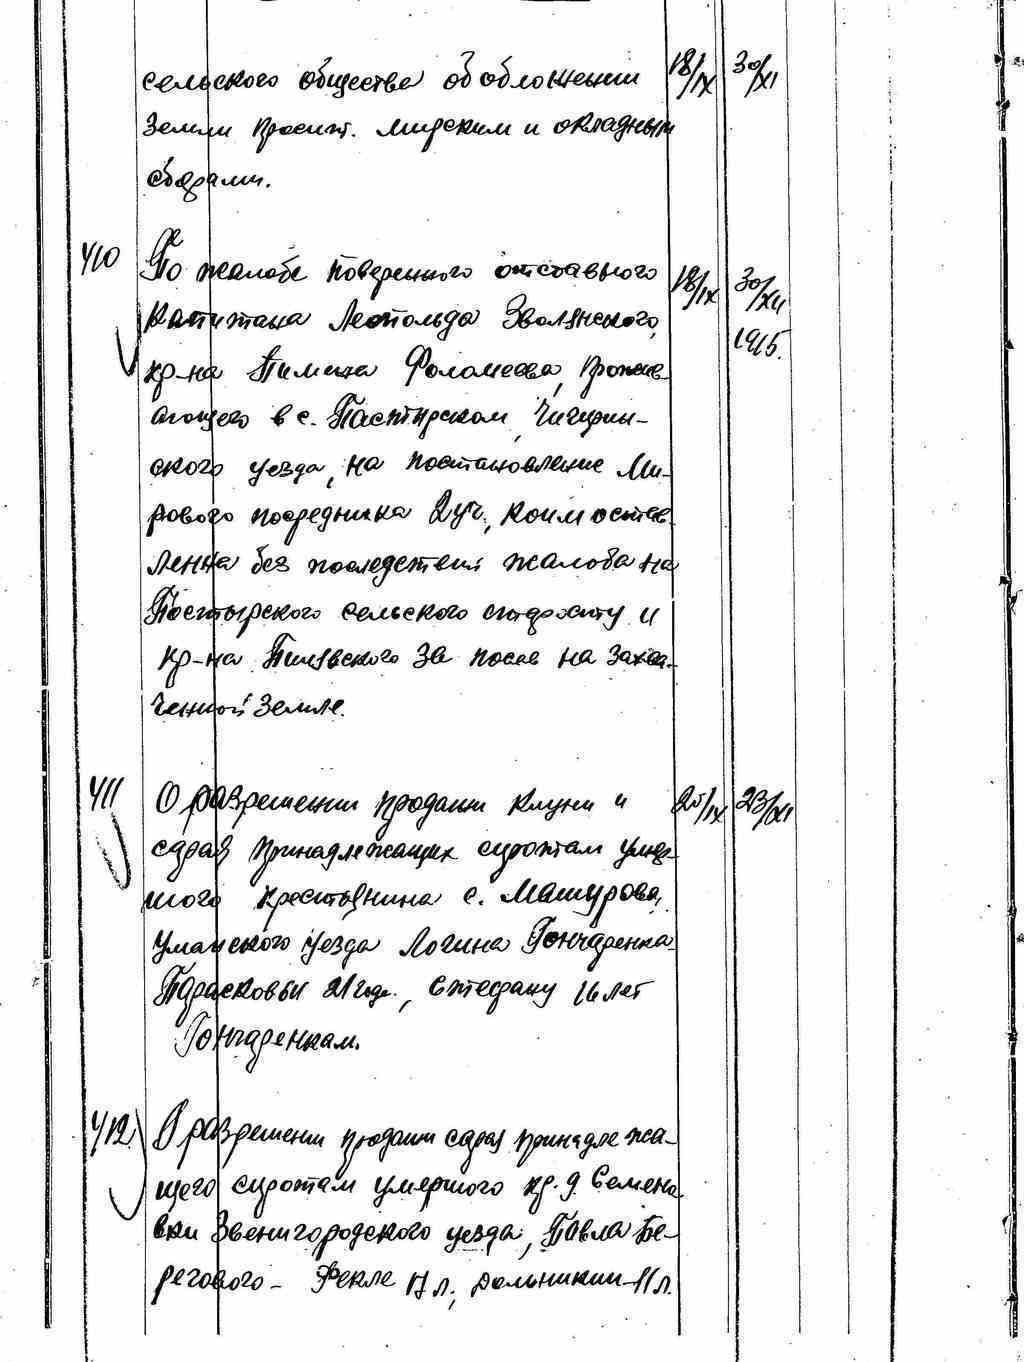 сельского общества об обложении 18/IX 30/XI
земли просит. мирским и окладным
сборами.
410 По жалобе поверенного отставного 18/IX 30/XII
капитана Леопольда Зволянского, 1915.
кр-на Пимена Фоломеева, прожив-
ающего в с. Пастырском, Чигирин-
ского уезда, на постановление Ми-
рового посредника 2 уч., коим остав-
ленна без последствий жалоба на
Постырского сельского старосту и
кр-на Пилявского за посев на захва-
ченной земле.
411 О разрешении продажи клуни и 25/IX 23/XI
сарая принадлежащих сиротам умер-
шого крестьянина с. Машурова,
Уманского уезда Логина Гончаренка
Парасковьи 21 год., Стефану 16 лет
Гончаренкам.
412. О разрешении продажи сарая принадлежа-
щего сиротам умершого кр. д. Семена-
вки Звенигородского уезда, Павла Бе-
регового - Фекле 17 л., 11 л.